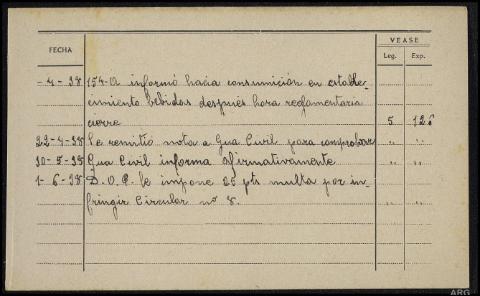 VEASE
FECHA
Leg. Exp.
-4-38 154-A informó hacia consumición en estable-
cimiento bebidas despues hora reglamentaria
cierre 5 126
22-4-38 Se remitió nota a Gua Civil para comprobar " "
30-5-38 Gua Civil informa afirmativamente " "
1-6-38 D.O.P. le impone 25 pts multa por in- " "
fringir Circular nº 8.
ARG